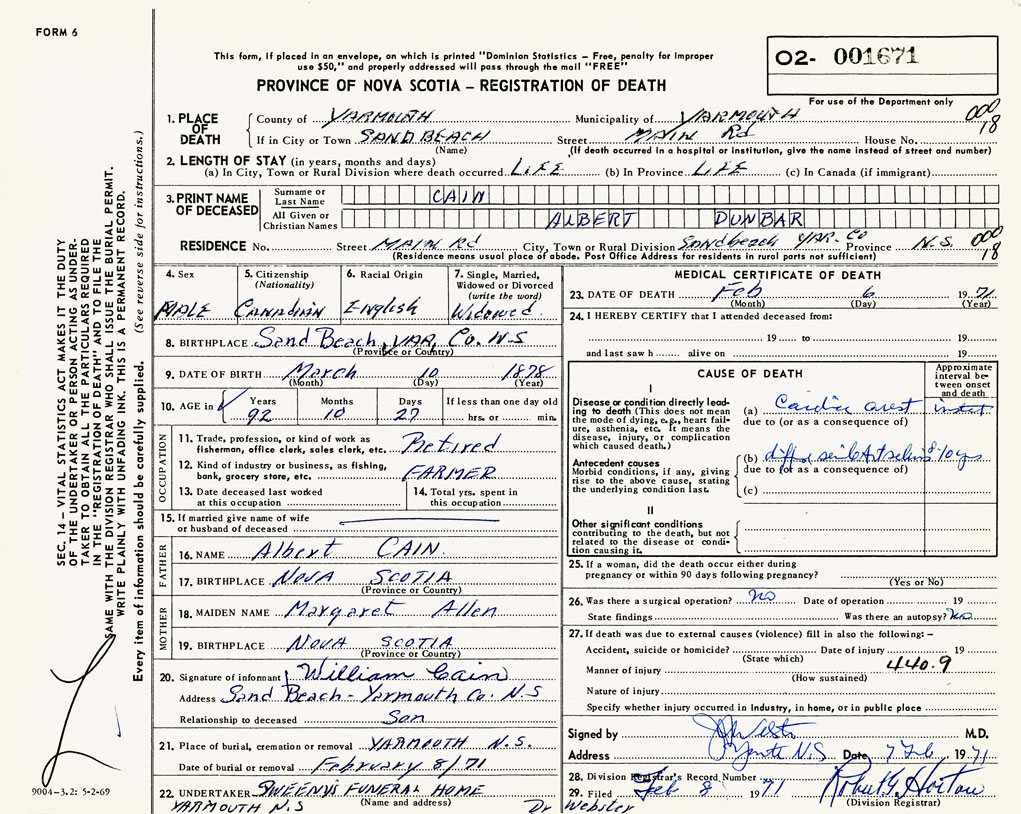 FORM 6
This form, if placed in an envelope, on which is printed "Dominion Statistics – Free, penalty for improper
use $50," and properly addressed will pass through the mail "FREE"
PROVINCE OF NOVA SCOTIA – REGISTRATION OF DEATH
02- 001671
For use of the Department only
1. PLACE OF DEATH
County of YARMOUTH Municipality of YARMOUTH 000
If in City or Town SAND BEACH Street MAIN Rd House No. 18
(Name) (If death occurred in a hospital or institution, give the name instead of street and number)
2. LENGTH OF STAY (in years, months and days)
(a) In City, Town or Rural Division where death occurred LIFE (b) In Province LIFE (c) In Canada (if immigrant)
3. PRINT NAME OF DECEASED
Surname or Last Name CAIN
All Given or Christian Names ALBERT DUNBAR
RESIDENCE No. Street MAIN Rd City, Town or Rural Division Sandbeach YAR. Co Province N.S. 000
(Residence means usual place of abode. Post Office Address for residents in rural parts not sufficient) 18
4. Sex MALE
5. Citizenship (Nationality) Canadian
6. Racial Origin English
7. Single, Married, Widowed or Divorced (write the word) Widowed
8. BIRTHPLACE Sand Beach, YAR, Co. N-S
(Province or Country)
9. DATE OF BIRTH March 10 1878
(Month) (Day) (Year)
10. AGE in Years 92 Months 10 Days 27 If less than one day old hrs. or min.
OCCUPATION
11. Trade, profession, or kind of work as
fisherman, office clerk, sales clerk, etc. Retired
12. Kind of industry or business, as fishing,
bank, grocery store, etc. FARMER
13. Date deceased last worked
at this occupation
14. Total yrs. spent in
this occupation
15. If married give name of wife
or husband of deceased
FATHER
16. NAME Albert CAIN.
17. BIRTHPLACE NOVA SCOTIA
(Province or Country)
MOTHER
18. MAIDEN NAME Margaret Allen
19. BIRTHPLACE NOVA SCOTIA
(Province or Country)
20. Signature of informant William Cain
Address Sand Beach – Yarmouth Co. N.S
Relationship to deceased Son
21. Place of burial, cremation or removal YARMOUTH N.S.
Date of burial or removal February 8/71
22. UNDERTAKER SWEENY'S FUNERAL HOME
(Name and address)
YARMOUTH N.S
Dr Webster
MEDICAL CERTIFICATE OF DEATH
23. DATE OF DEATH Feb 6 1971
(Month) (Day) (Year)
24. I HEREBY CERTIFY that I attended deceased from:
19 to 19
and last saw h alive on 19
CAUSE OF DEATH
Approximate interval between onset and death
I
Disease or condition directly leading to death (This does not mean the mode of dying, e.g., heart failure, asthenia, etc. It means the disease, injury, or complication which caused death.)
(a) Cardiac arrest
due to (or as a consequence of)
Antecedent causes
Morbid conditions, if any, giving rise to the above cause, stating the underlying condition last.
(b) 10 yrs
due to (or as a consequence of)
(c)
II
Other significant conditions
contributing to the death, but not related to the disease or condition causing it.
25. If a woman, did the death occur either during
pregnancy or within 90 days following pregnancy?
(Yes or No)
26. Was there a surgical operation? No Date of operation 19
State findings Was there an autopsy? No
27. If death was due to external causes (violence) fill in also the following: –
Accident, suicide or homicide? Date of injury 19
(State which)
Manner of injury 440.9
(How sustained)
Nature of injury
Specify whether injury occurred in industry, in home, or in public place
Signed by M.D.
Address N.S Date 7 Feb 1971
28. Division Registrar's Record Number
29. Filed Feb 8 1971 Robert G. Horton
(Division Registrar)
SEC. 14 – VITAL STATISTICS ACT MAKES IT THE DUTY
OF THE UNDERTAKER OR PERSON ACTING AS UNDER-
TAKER TO OBTAIN ALL THE PARTICULARS REQUIRED
IN THE "REGISTRATION OF DEATH" AND TO FILE THE
SAME WITH THE DIVISION REGISTRAR WHO SHALL ISSUE THE BURIAL PERMIT.
WRITE PLAINLY WITH UNFADING INK. THIS IS A PERMANENT RECORD.
Every item of information should be carefully supplied. (See reverse side for instructions.)
9004-3.2: 5-2-69